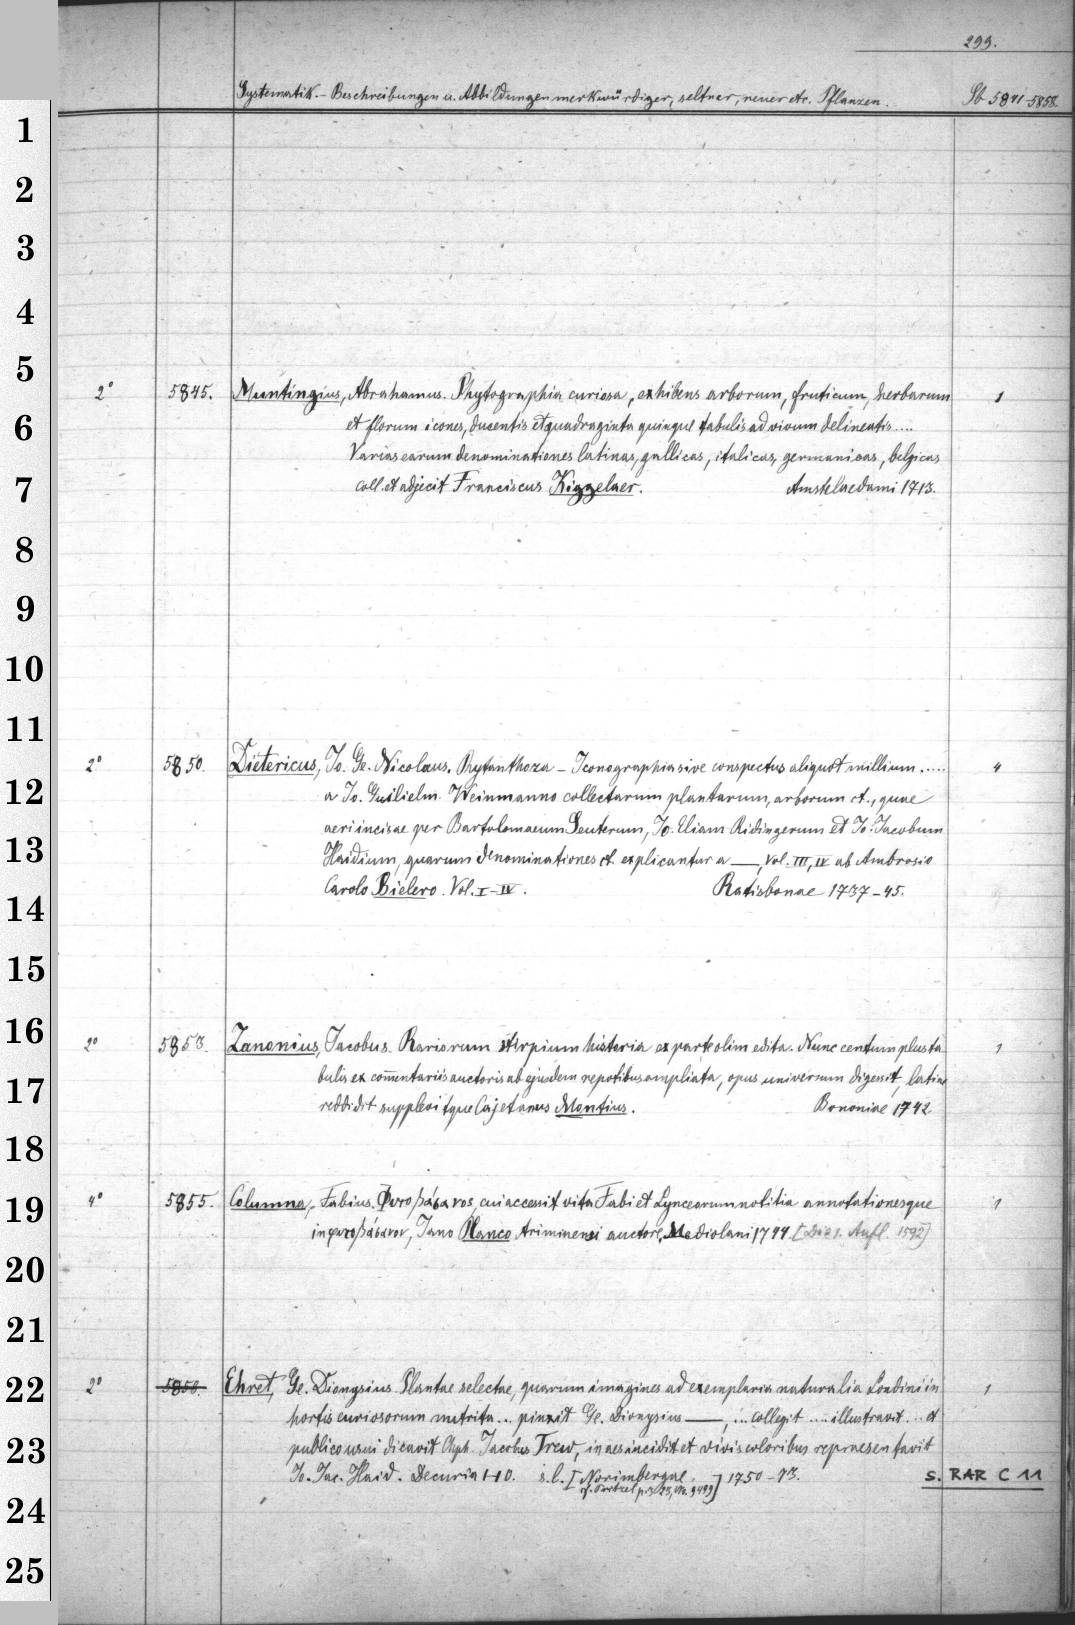 299.
Systematik. - Beschreibungen u. Abbildungen merkwürdiger, seltner, neuer etc. Pflanzen. Sb 5841-5858.
1
2
3
4
5
2° 5845. Muntingius, Abrahamus. Phytographia curiosa, exhibens arborum, fruticum, herbarum 1
6
et florum icones, ducentis et quadraginta quinque tabulis ad vivum delineatis....
Varias earum denominationes latinas, gallicas, italicas, germanicas, belgicas
7
coll. et adjecit Franciscus Kiggelaer. Amstelaedami 1713.
8
9
10
11
2° 5850. Dietericus, Jo. Ge. Nicolaus, Phytanthoza - Iconographia sive conspectus aliquot millium ..... 4
12
a Jo. Guilielm. Weinmanno collectarum plantarum, arborum ct., quae
aeri incisae per Bartolomaeum Seuterum, Jo. Eliam Ridingerum et Jo. Jacobum
13
Haidium, quarum denominationes ct. explicantur a ——, Vol. III, IV ab Ambrosio
Carolo Bielero. Vol. I-IV. Ratisbonae 1737-45.
14
15
16
2° 5853. Zanonius, Jacobus. Rariorum stirpium historia ex parte olim edita. Nunc centum plus ta 1
bulis ex com̄entariis auctoris ab ejusdem nepotibus ampliata, opus universum digessit, latine
17
reddidit supplevitque Cajetanus Montius. Bononiae 1742
18
4° 5855. Columna, Fabius. Φυτοβάσανος, cui accessit vita Fabi et Lynceorum notitia annotationesque 1
19
in φυτοβάσανον, Jano Planco Ariminensi auctore. Mediolani 1744. [Die 1. Aufl. 1592]
20
21
2° 5858. Ehret, Ge. Dionysius. Plantae selectae, quarum imagines ad exemplaria naturalia Londini in 1
22
hortis curiosorum nutrita .. pinxit Ge. Dionysius ——, ... collegit .... illustravit ... et
publico usui dicavit Chph. Jacobus Trew, in aes incidit et vivis coloribus repraesentavit
23
Jo. Jac. Haid. Decuria 1-10. s. l. [Norimbergae. cf. Pritzel p. 323, No. 9499] 1750-73. s. RAR C 11
24
25